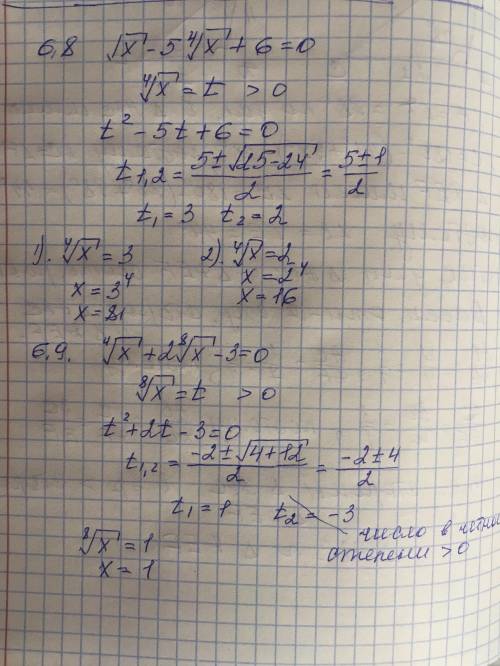 6,8 √x - 5 ∜x + 6 = 0
∜x = t > 0
t² - 5t + 6 = 0
t1,2 = (5 ± √(25-24))/2 = (5 ± 1)/2
t₁ = 3 t₂ = 2
1). ∜x = 3 2). ∜x = 2
x = 3⁴ x = 2⁴
x = 81 x = 16
6.9. ∜x + 2 ⁸√x - 3 = 0
⁸√x = t > 0
t² + 2t - 3 = 0
t1,2 = (-2 ± √(4+12))/2 = (-2 ± 4)/2
t₁ = 1 t₂ = -3
число в четной
степени > 0
⁸√x = 1
x = 1